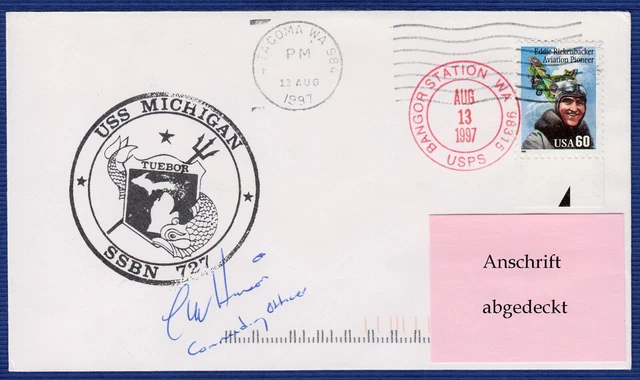 TACOMA WA 984
PM
13 AUG
1997
Eddie Rickenbacker
Aviation Pioneer
USA 60
BANGOR STATION WA 98315
AUG
13
1997
USPS
USS MICHIGAN
TUEBOR
SSBN 727
Commanding Officer
Anschrift
abgedeckt